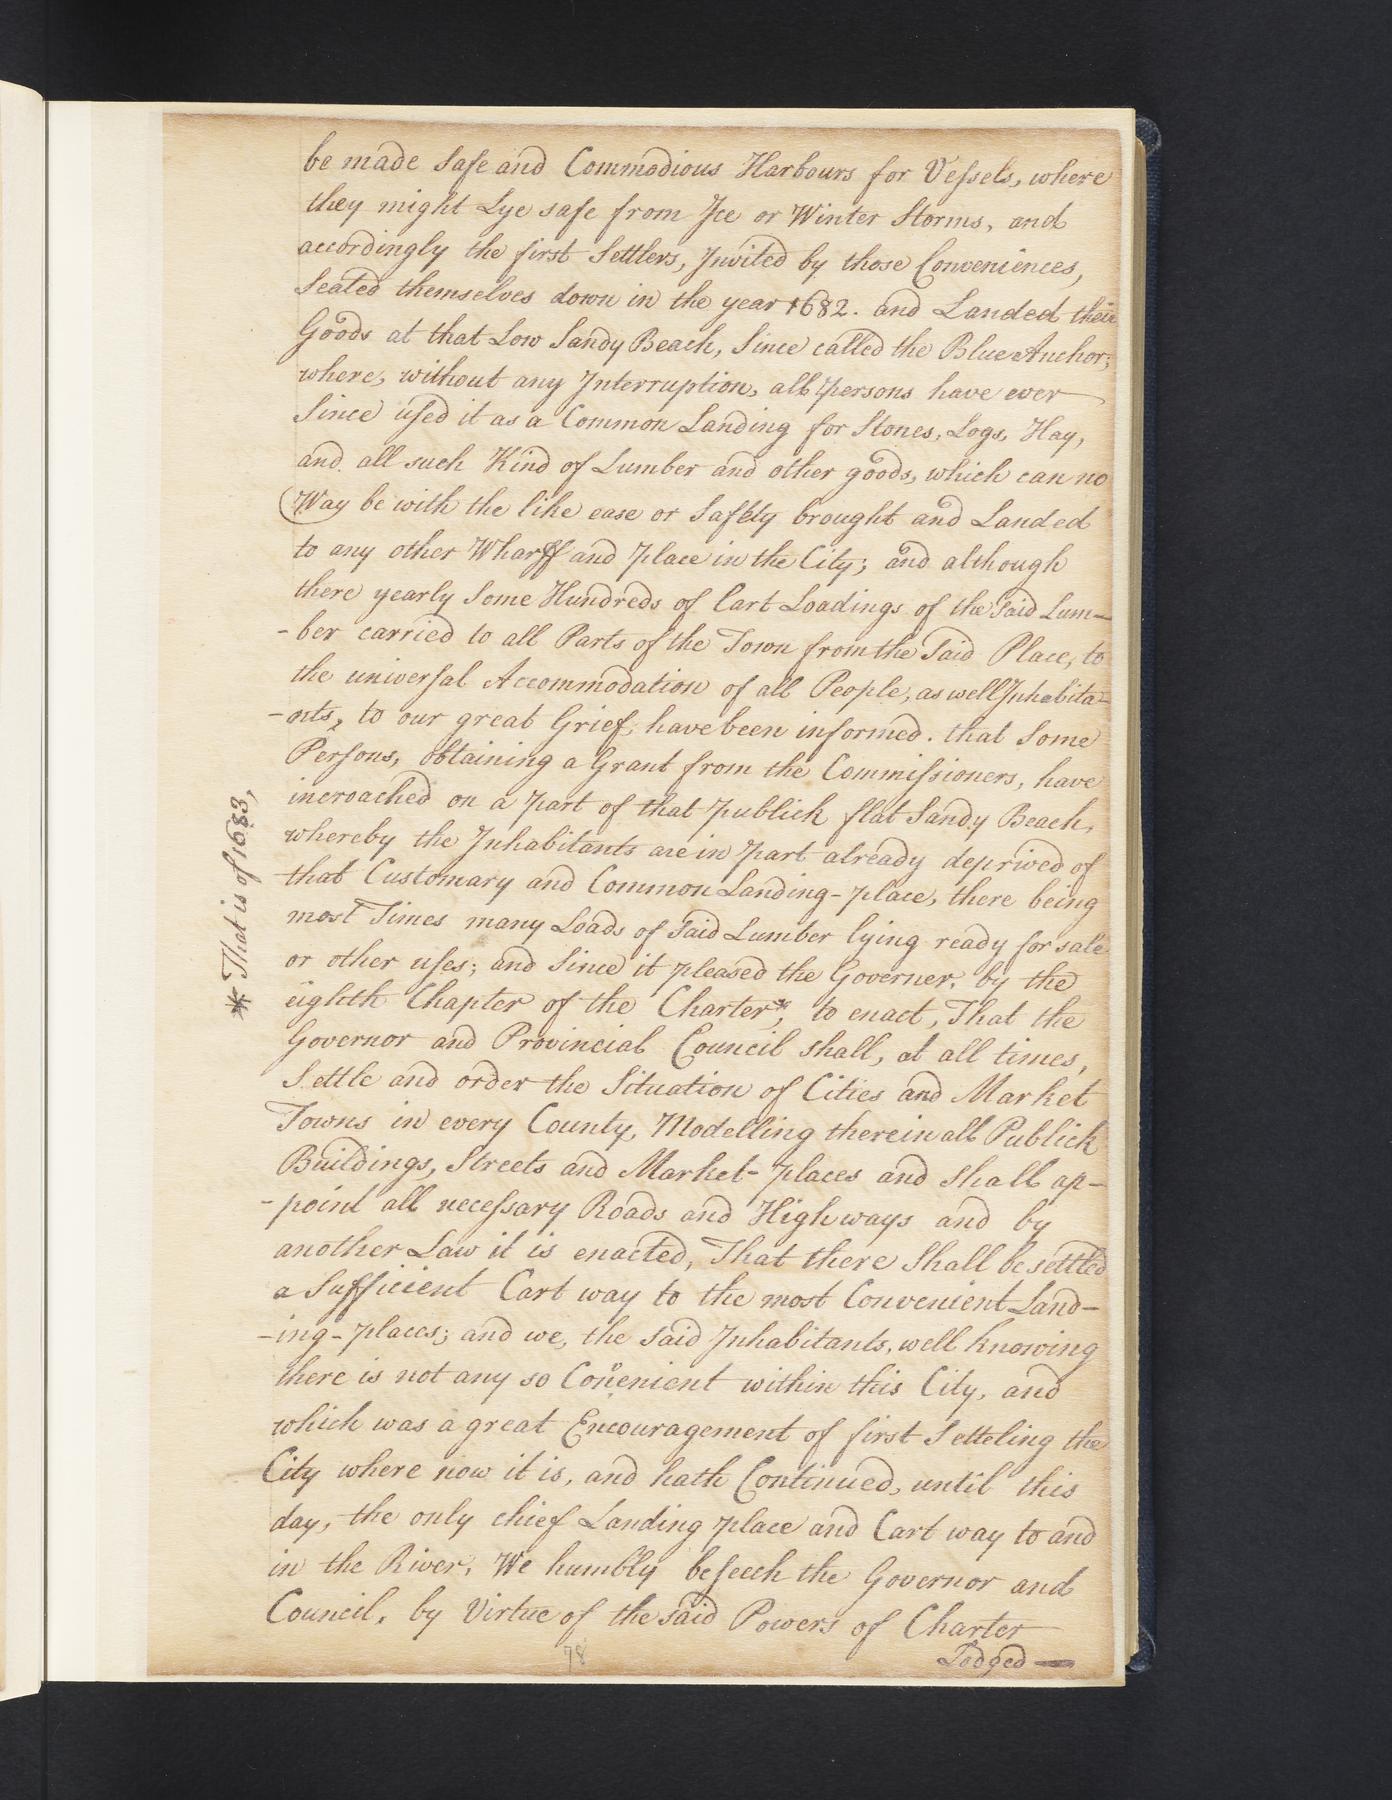 be made Safe and Commodious Harbours for Veſsels, where
they might Lye safe from Ice or Winter Storms, and
accordingly the first Settlers, Invited by those Conveniences,
Seated themselves down in the year 1682. and Landed their
Goods at that Low Sandy Beach, Since called the Blue Anchor;
where, without any Interruption, all persons have ever
Since uſed it as a Common Landing for Stones, Logs, Hay,
and all such Kind of Lumber and other goods, which can no
Way be with the like ease or Safety brought and Landed
to any other Wharff and place in the City; and although
there yearly Some Hundreds of Cart Loadings of the Said Lum-
-ber carried to all Parts of the Town from the Said Place, to
the univerſal Accommodation of all People, as well Inhabita-
-nts, to our great Grief, have been informed. that Some
Perſons, obtaining a Grant from the Commiſsioners, have
incroached on a part of that publick flat Sandy Beach,
whereby the Inhabitants are in part already deprived of
that Customary and Common Landing-place, there being
most Times many Loads of Said Lumber lying ready for sale
or other uſes; and Since it pleased the Governer, by the
eighth Chapter of the Charter*, to enact, That the
Governor and Provincial Council shall, at all times,
Settle and order the Situation of Cities and Market
Towns in every County, Modelling therein all Publick
Buildings, Streets and Market-places and shall ap-
-point all neceſsary Roads and Highways and by
another Law it is enacted, That there Shall be settled
a Sufficient Cart way to the most Convenient Land-
-ing-places; and we, the said Inhabitants, well knowing
there is not any so Coñenient within this City, and
which was a great Encouragement of first Setteling the
City where now it is, and hath Continued, until this
day, the only chief Landing place and Cart way to and
in the River, We humbly beſeech the Governor and
Council, by Virtue of the said Powers of Charter
Lodged —
* That is of 1683,
78